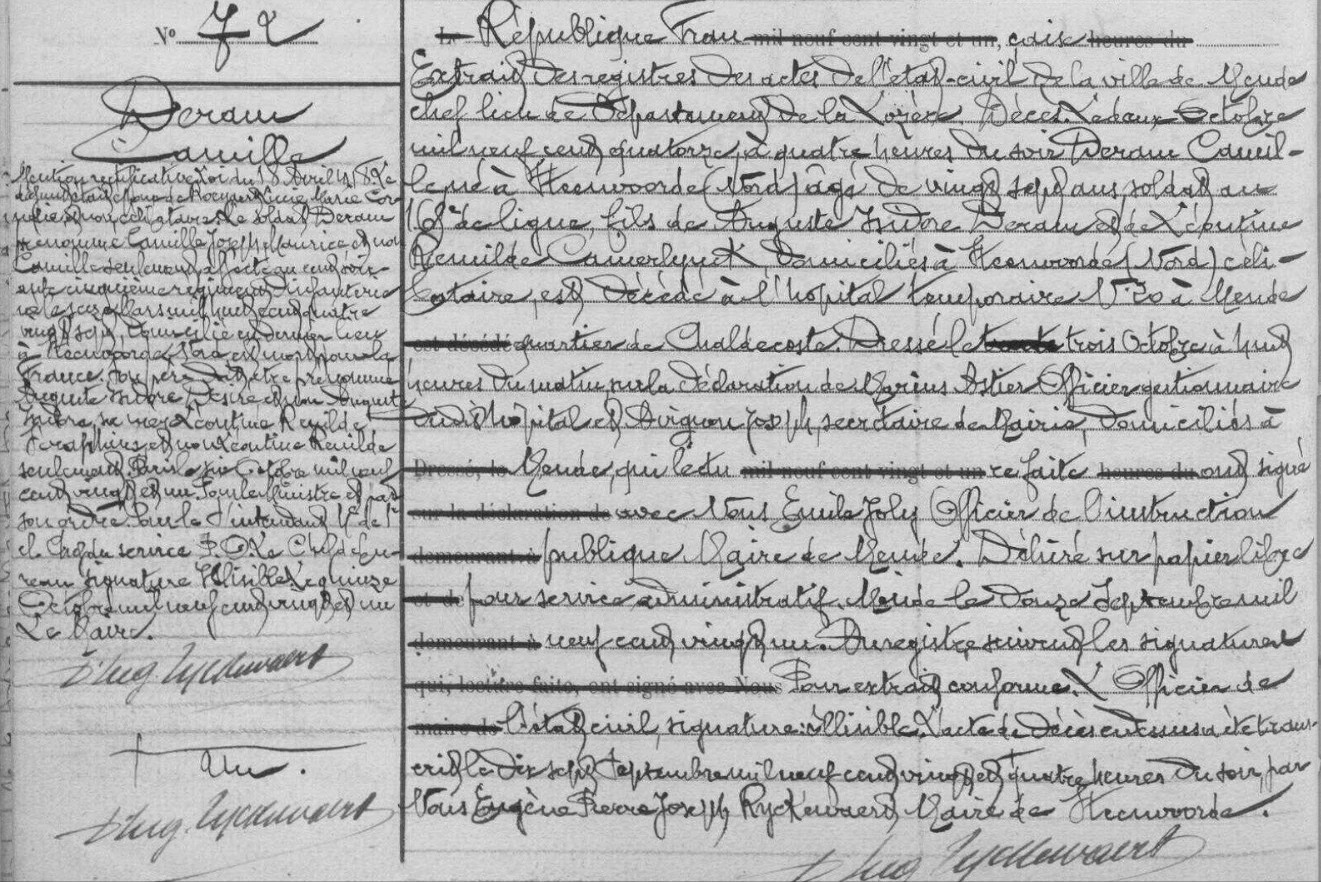 N° 72
Deram
Camille
Mention rectificative Loi du 18 Avril 1918. Le
défunt était époux de Marie Cor-
et non célibataire. Le soldat Deram
prénommé Camille Joseph Maurice et non
Camille seulement affecté au cent soix-
ante cinquième régiment d'infanterie
né le seize Mars mil huit cent quatre
vingt sept domicilié en dernier lieu
à Steenvoorde Nord est mort pour la
France. Son père doit être prénommé
Auguste Isidore Désiré et non Auguste
Isidore, sa mère Léontine Reinilde
Séraphine et non Léontine Reinilde
seulement. Paris le six Octobre mil neuf
cent vingt et un. Pour le Ministre et par
son ordre Pour le S/intendant de 1e
cl Chef du service Le Chef de bu-
reau signature illisible. Le quinze
Octobre mil neuf cent vingt et un
Le Maire.
D Eug Ryckewaert
Un.
D Eug. Ryckewaert
Le République Fran mil neuf cent vingt et un, çaise heures du
Extrait des registres des actes de l'état-civil de la ville de Mende
chef lieu de Département de la Lozère Décès. Le deux Octobre
mil neuf cent quatorze, à quatre heures du soir Deram Camil-
le né à Steenvoorde (Nord) âgé de vingt sept ans, soldat au
165e de ligne, fils de Auguste Isidore Deram et de Léontine
Reinilde Camerlynck domiciliés à Steenvoorde (Nord) céli-
bataire, est décédé à l'hôpital temporaire N° 20 à Mende
est décédé quartier de Chaldecoste. Dressé le trente trois Octobre à huit
heures du matin sur la déclaration de Marius Astier Officier gestionnaire
dudit hopital et Avignon Joseph, secrétaire de Mairie, domiciliés à
Dressé, le Mende, qui lectu mil neuf cent vingt et un re faite heures du ont signé
sur la déclaration de avec Nous Emile Joly Officier de l'instruction
demeurant à publique Maire de Mende. Délivré sur papier libre
et de pour service administratif. Mende le douze Septembre mil
demeurant à neuf cent vingt un. Au registre suivent les signatures
qui, lecture faite, ont signé avec Nous Pour extrait conforme. L'Officier de
maire de l'état civil, signature: illisible. L'acte de décès ci dessus a été trans-
crit le dix sept Septembre mil neuf cent vingt et quatre heures du soir, par
Nous Eugène Pierre Joseph Ryckewaert, Maire de Steenvoorde.
D Eug Ryckewaert